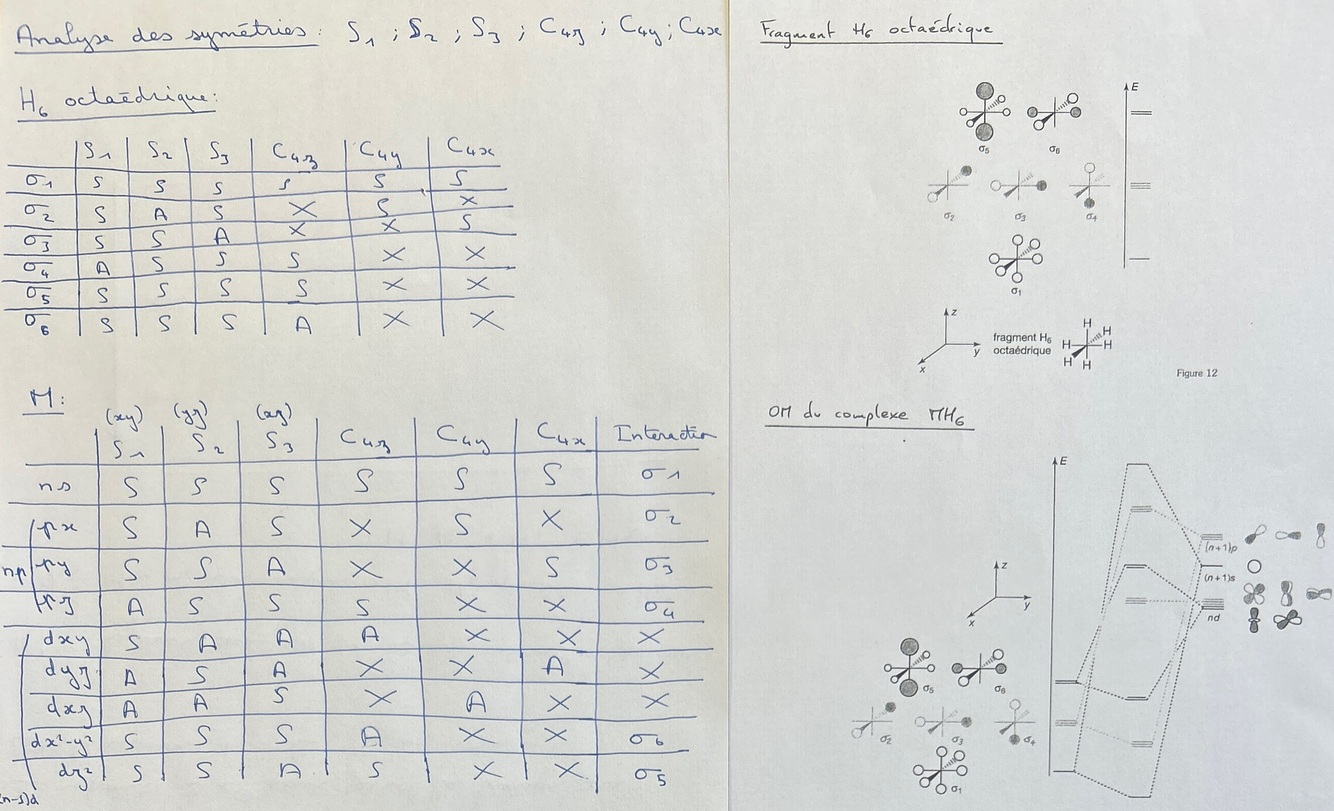 Analyse des symétries : S1 ; S2 ; S3 ; C4z ; C4y ; C4x
H6 octaédrique :
S1 S2 S3 C4z C4y C4x
σ1 S S S S S S
σ2 S A S X S X
σ3 S S A X X S
σ4 A S S S X X
σ5 S S S S X X
σ6 S S S A X X
M :
(xy) (yz) (xz)
S1 S2 S3 C4z C4y C4x Interaction
ns S S S S S S σ1
px S A S X S X σ2
np py S S A X X S σ3
pz A S S S X X σ4
dxy S A A A X X X
dyz A S A X X A X
dxz A A S X A X X
dx²-y² S S S A X X σ6
dz² S S A S X X σ5
(n-1)d
Fragment H6 octaédrique
E
σ5 σ6
σ2 σ3 σ4
σ1
z
y
x
fragment H6
octaédrique
H
H
H H
H H
Figure 12
OM du complexe MH6
E
z
y
x
(n+1)p
(n+1)s
nd
σ5 σ6
σ2 σ3 σ4
σ1